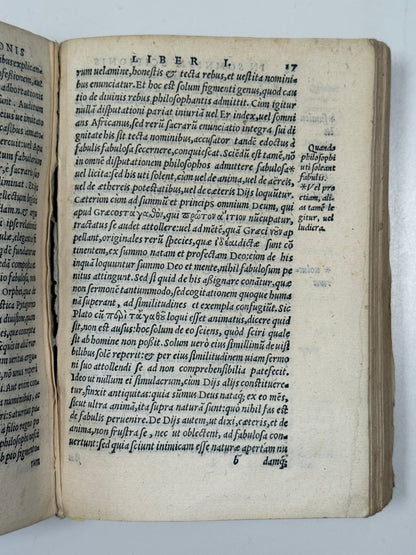 ONIS
LIBER I. 17
rum uelamine, honestis & tecta rebus, et uestita nomini=
bus enunciatur. Et hoc est solum figmenti genus, quod cautio
de diuinis rebus philosophantis admittit. Cum igitur
nulla disputationi pariat iniuriā uel Er index, uel somni
ans Africanus, sed rerū sacrarū enunciatio integra sui di
gnitate his sit tecta nominibus, accusator tandē edoctus à
fabulis fabulosa secernere, conquiescat. Sciēdū est tamē, nō
in omnē disputationem philosophos admittere fabulosa*
uel licita: sed his uti solent, cùm de anima, uel de aëreis,
uel de æthereis potestatibus, uel de cæteris Dijs loquūtur.
Cæterum cùm ad summū et principē omnium Deum, qui
apud Græcos τ' ἀγαθὸν, qui πρῶτον αἴτιον nūcupatur,
tractatus se audet attollere: uel ad mētē, quā Græci νοῦν ap
pellant, originales rerū species, quæ ἰδέαι dictæ sunt cō
tinentem, ex summo natam et profectam Deo: cùm de his
inquā loquuntur summo Deo et mente, nihil fabulosum pe
nitus attingunt. Sed si quid de his assignare conātur, quæ
non sermonē tantummodo, sed cogitationem quoque huma
nā superant, ad similitudines et exempla confugiūt. Sic
Plato cū περὶ τἀγαθοῦ loqui esset animatus, dicere quid
sit, non est ausus: hoc solum de eo sciens, quòd sciri quale
sit ab homine non possit. Solum uerò ei simillimū de uisi
bilibus solē reperit: & per eius similitudinem uiam sermo
ni suo attollendi se ad non comprehensibilia patefecit.
Ideo ut nullum ei simulacrum, cum Dijs alijs constituere=
tur, finxit antiquitas: quia summus Deus nataq; ex eo mēs,
sicut ultra animā, ita supra naturā sunt: quò nihil fas est
de fabulis peruenire. De Dijs autem, ut dixi, cæteris, et de
anima, non frustra se, nec ut oblectent, ad fabulosa con=
uertunt: sed quia sciunt inimicam esse naturæ apertam nu
b damq;
Quando
philosophi
uti soleant
fabulis.
* Vel pro
etiam, ali=
as tamē le
gitur, uel
ludicra.